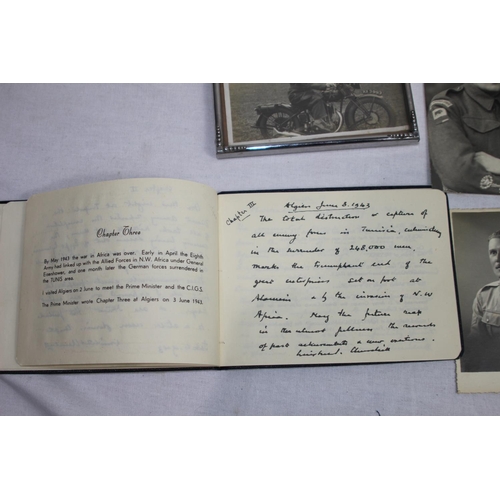 Chapter Three
By May 1943 the war in Africa was over. Early in April the Eighth
Army had linked up with the Allied Forces in N.W. Africa under General
Eisenhower, and one month later the German forces surrendered in
the TUNIS area.
I visited Algiers on 2 June to meet the Prime Minister and the C.I.G.S.
The Prime Minister wrote Chapter Three at Algiers on 3 June 1943.
Chapter III
Algiers June 3. 1943
The total destruction or capture of
all enemy forces in Tunisia, culminating
in the surrender of 248,000 men,
marks the triumphant end of the
great enterprises set on foot at
Alamein & by the invasion of N.W.
Africa. May the future reap
in the utmost fullness the rewards
of past achievements & new exertions.
Winston S. Churchill